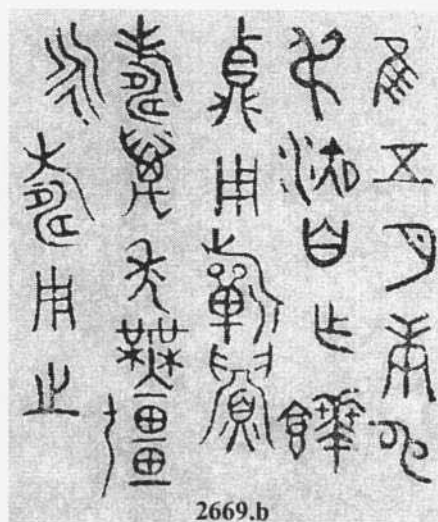 隹五月庚申
弔液自乍饙
鼎用𣄨眉
壽萬年無疆
永壽用之
2669.b